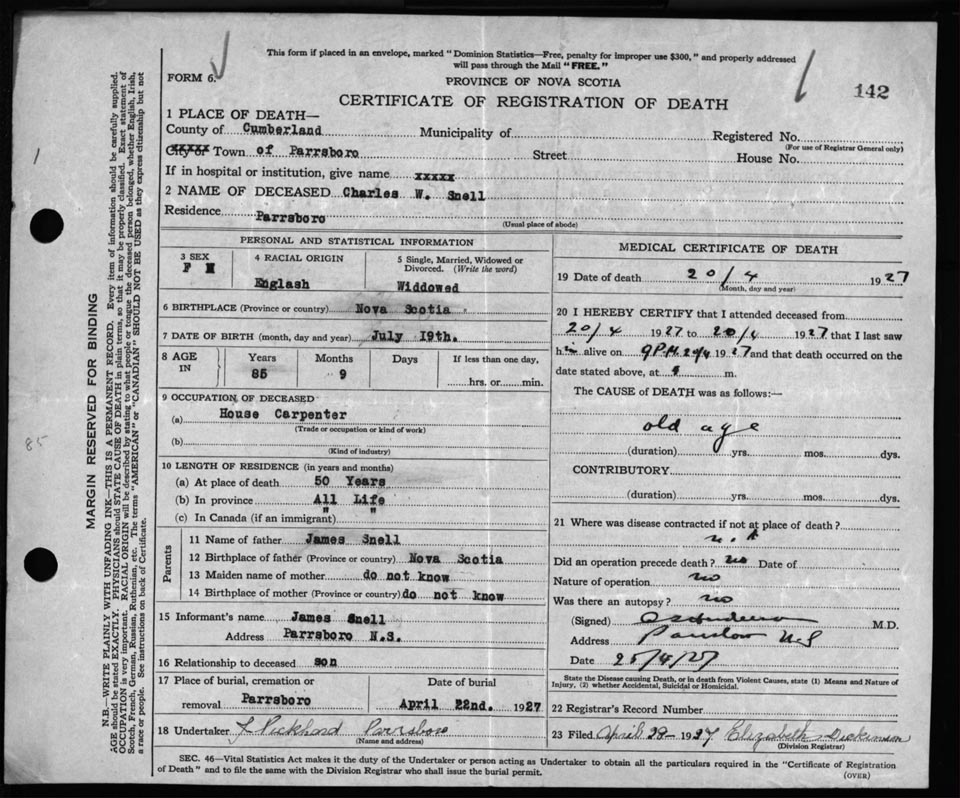 This form if placed in an envelope, marked "Dominion Statistics—Free, penalty for improper use $300," and properly addressed
will pass through the Mail "FREE."
FORM 6.
PROVINCE OF NOVA SCOTIA
142
CERTIFICATE OF REGISTRATION OF DEATH
1 PLACE OF DEATH—
County of Cumberland Municipality of Registered No.
(For use of Registrar General only)
City or Town of Parrsboro Street House No.
If in hospital or institution, give name xxxxx
2 NAME OF DECEASED Charles W. Snell
Residence Parrsboro
(Usual place of abode)
PERSONAL AND STATISTICAL INFORMATION
3 SEX 4 RACIAL ORIGIN 5 Single, Married, Widowed or
Divorced. (Write the word)
F M Englash Widdowed
6 BIRTHPLACE (Province or country) Nova Scotia
7 DATE OF BIRTH (month, day and year) July 19th.
8 AGE IN Years Months Days If less than one day,
85 9 hrs. or min.
9 OCCUPATION OF DECEASED
(a) House Carpenter
(Trade or occupation or kind of work)
(b)
(Kind of industry)
10 LENGTH OF RESIDENCE (in years and months)
(a) At place of death 50 Years
(b) In province All Life
(c) In Canada (if an immigrant) " "
Parents
11 Name of father James Snell
12 Birthplace of father (Province or country) Nova Scotia
13 Maiden name of mother do not know
14 Birthplace of mother (Province or country) do not know
15 Informant's name James Snell
Address Parrsboro N.S.
16 Relationship to deceased son
17 Place of burial, cremation or Date of burial
removal Parrsboro April 22nd. 1927
18 Undertaker Pickhard Parrsboro
(Name and address)
MEDICAL CERTIFICATE OF DEATH
19 Date of death 20/4 1927
(Month, day and year)
20 I HEREBY CERTIFY that I attended deceased from
20/4 1927 to 20/4 1927 that I last saw
h im alive on 9 P.M. 20/4 1927 and that death occurred on the
date stated above, at m.
The CAUSE of DEATH was as follows:—
old age
(duration) yrs. mos. dys.
CONTRIBUTORY
(duration) yrs. mos. dys.
21 Where was disease contracted if not at place of death?
Did an operation precede death? no Date of
Nature of operation no
Was there an autopsy? no
(Signed) M.D.
Address Parrsboro N.S
Date 25/4/27
State the Disease causing Death, or in death from Violent Causes, state (1) Means and Nature of
Injury, (2) whether Accidental, Suicidal or Homicidal.
22 Registrar's Record Number
23 Filed April 29 1927 Elizabeth Dickinson
(Division Registrar)
SEC. 46—Vital Statistics Act makes it the duty of the Undertaker or person acting as Undertaker to obtain all the particulars required in the "Certificate of Registration
of Death" and to file the same with the Division Registrar who shall issue the burial permit.
(OVER)
MARGIN RESERVED FOR BINDING
N.B.—WRITE PLAINLY WITH UNFADING INK—THIS IS A PERMANENT RECORD. Every item of information should be carefully supplied.
AGE should be stated EXACTLY. PHYSICIANS should STATE CAUSE OF DEATH in plain terms, so that it may be properly classified. Exact statement of
OCCUPATION is very important. RACIAL ORIGIN will be described by stating to what people or tongue the deceased person belonged, whether English, Irish,
Scotch, French, German, Russian, Ruthenian, etc. The terms "AMERICAN" or "CANADIAN" SHOULD NOT BE USED as they express citizenship but not
a race or people. See instructions on back of Certificate.
85